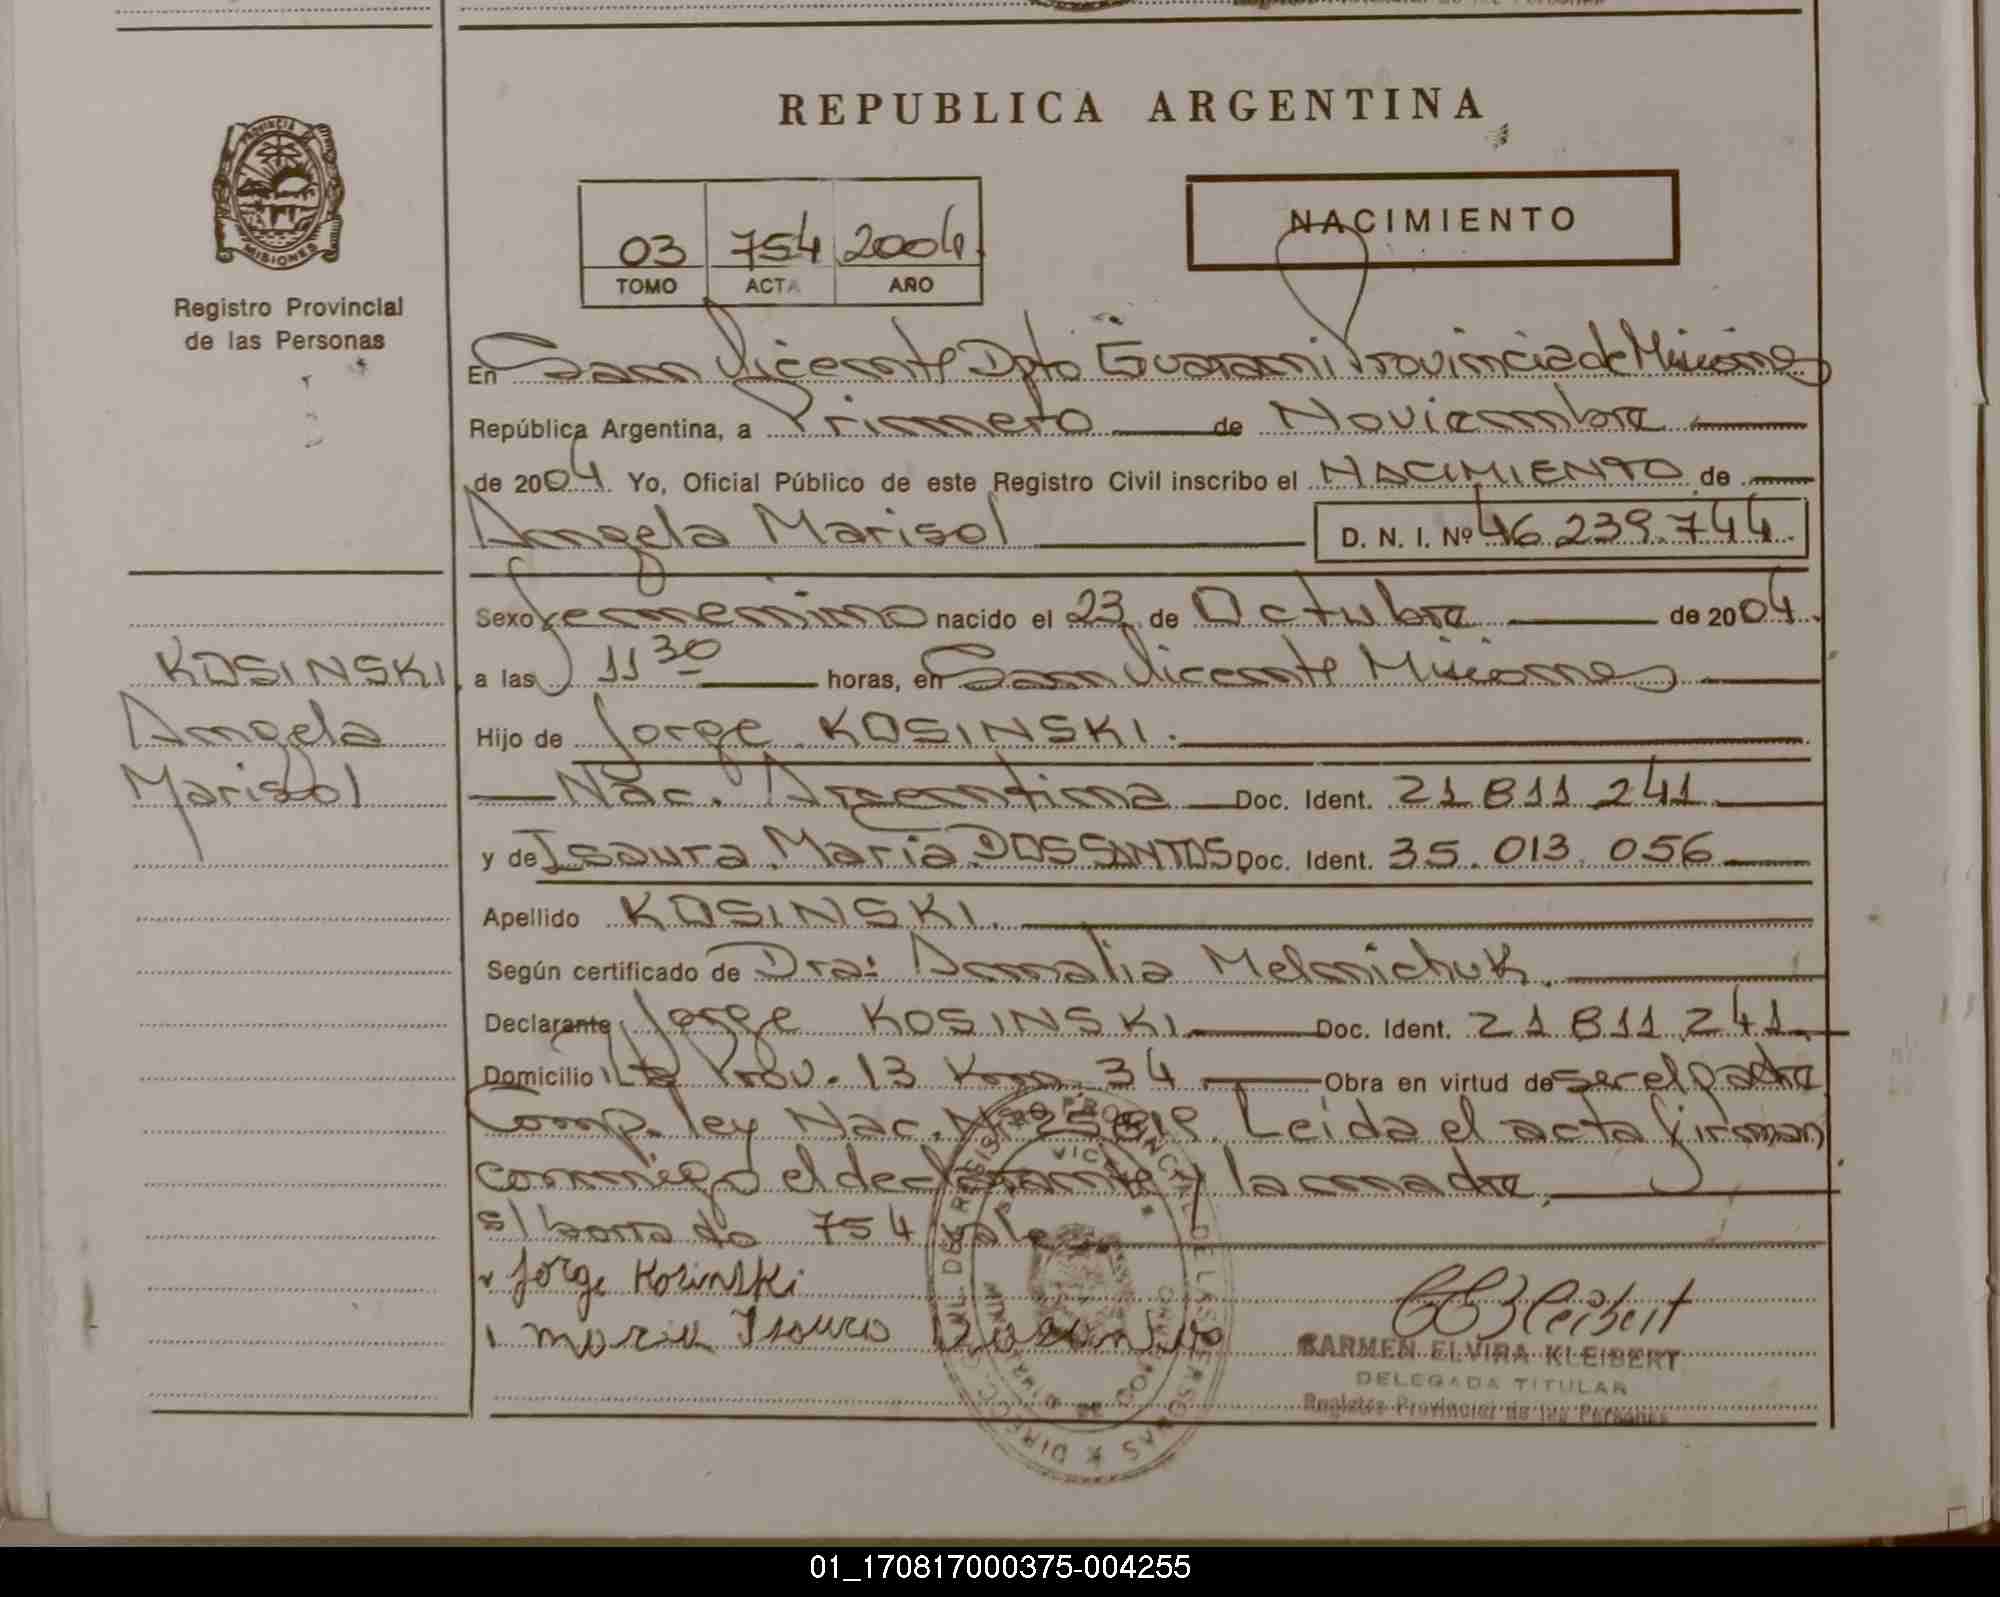 REPUBLICA ARGENTINA
PROVINCIA DE
MISIONES
Registro Provincial
de las Personas
03 754 2004
TOMO ACTA AÑO
NACIMIENTO
En San Vicente Dpto Guarani Provincia de Misiones
República Argentina, a Primero de Noviembre
de 2004 Yo, Oficial Público de este Registro Civil inscribo el NACIMIENTO de
Angela Marisol D. N. I. Nº 46.239.744
Sexo femenino nacido el 23 de Octubre de 2004
a las 11 30 horas, en San Vicente Misiones
Hijo de Jorge KOSINSKI.
Nac. Argentina Doc. Ident. 21 811 241
y de Isaura Maria DOS SANTOS Doc. Ident. 35.013.056
Apellido KOSINSKI.
Según certificado de Dra: Analia Melnichuk.
Declarante Jorge KOSINSKI Doc. Ident. 21 811.241
Domicilio Prov. 13 Km 34 Obra en virtud de ser el padre
Comp. ley Nac. Nº 25819. Leida el acta firman
conmigo el declarante y la madre.
s/ borrado 754 vale
KOSINSKI
Angela
Marisol
Jorge Kosinski
Maria Isaura
CARMEN ELVIRA KLEIBERT
DELEGADA TITULAR
Registro Provincial de las Personas
01_170817000375-004255